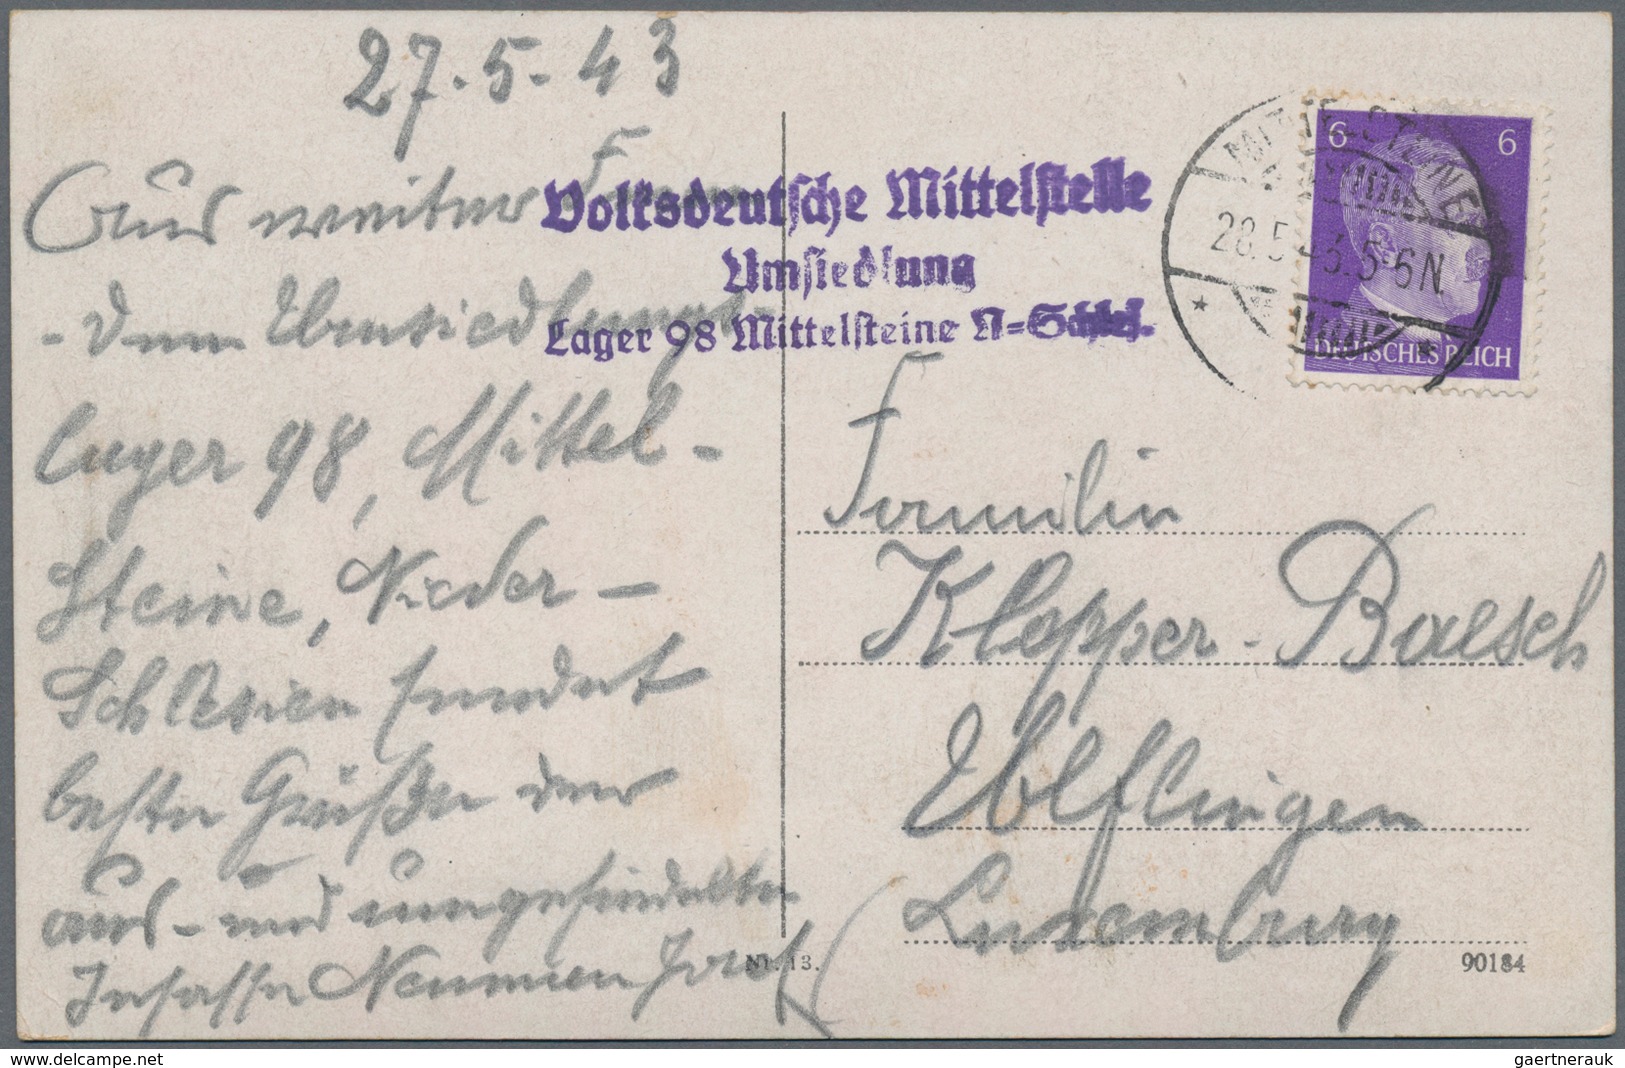 27.5.43
Aus weiter Fern
- dem Umsiedlungs
lager 98, Mittel-
Steine, Nieder-
Schlesien sendet
beste Grüße der
aus- und umgesiedelte
Insasse Neumien Josef
Volksdeutsche Mittelstelle
Umsiedlung
Lager 98 Mittelsteine N=Schles.
MITTELSTEINE
28.5.43.5-6N
6 6
DEUTSCHES REICH
Familie
Klepper-Baesch
Ulflingen
Luxemburg
Nr. 13.
90184
gaertnerauk
www.delcampe.net